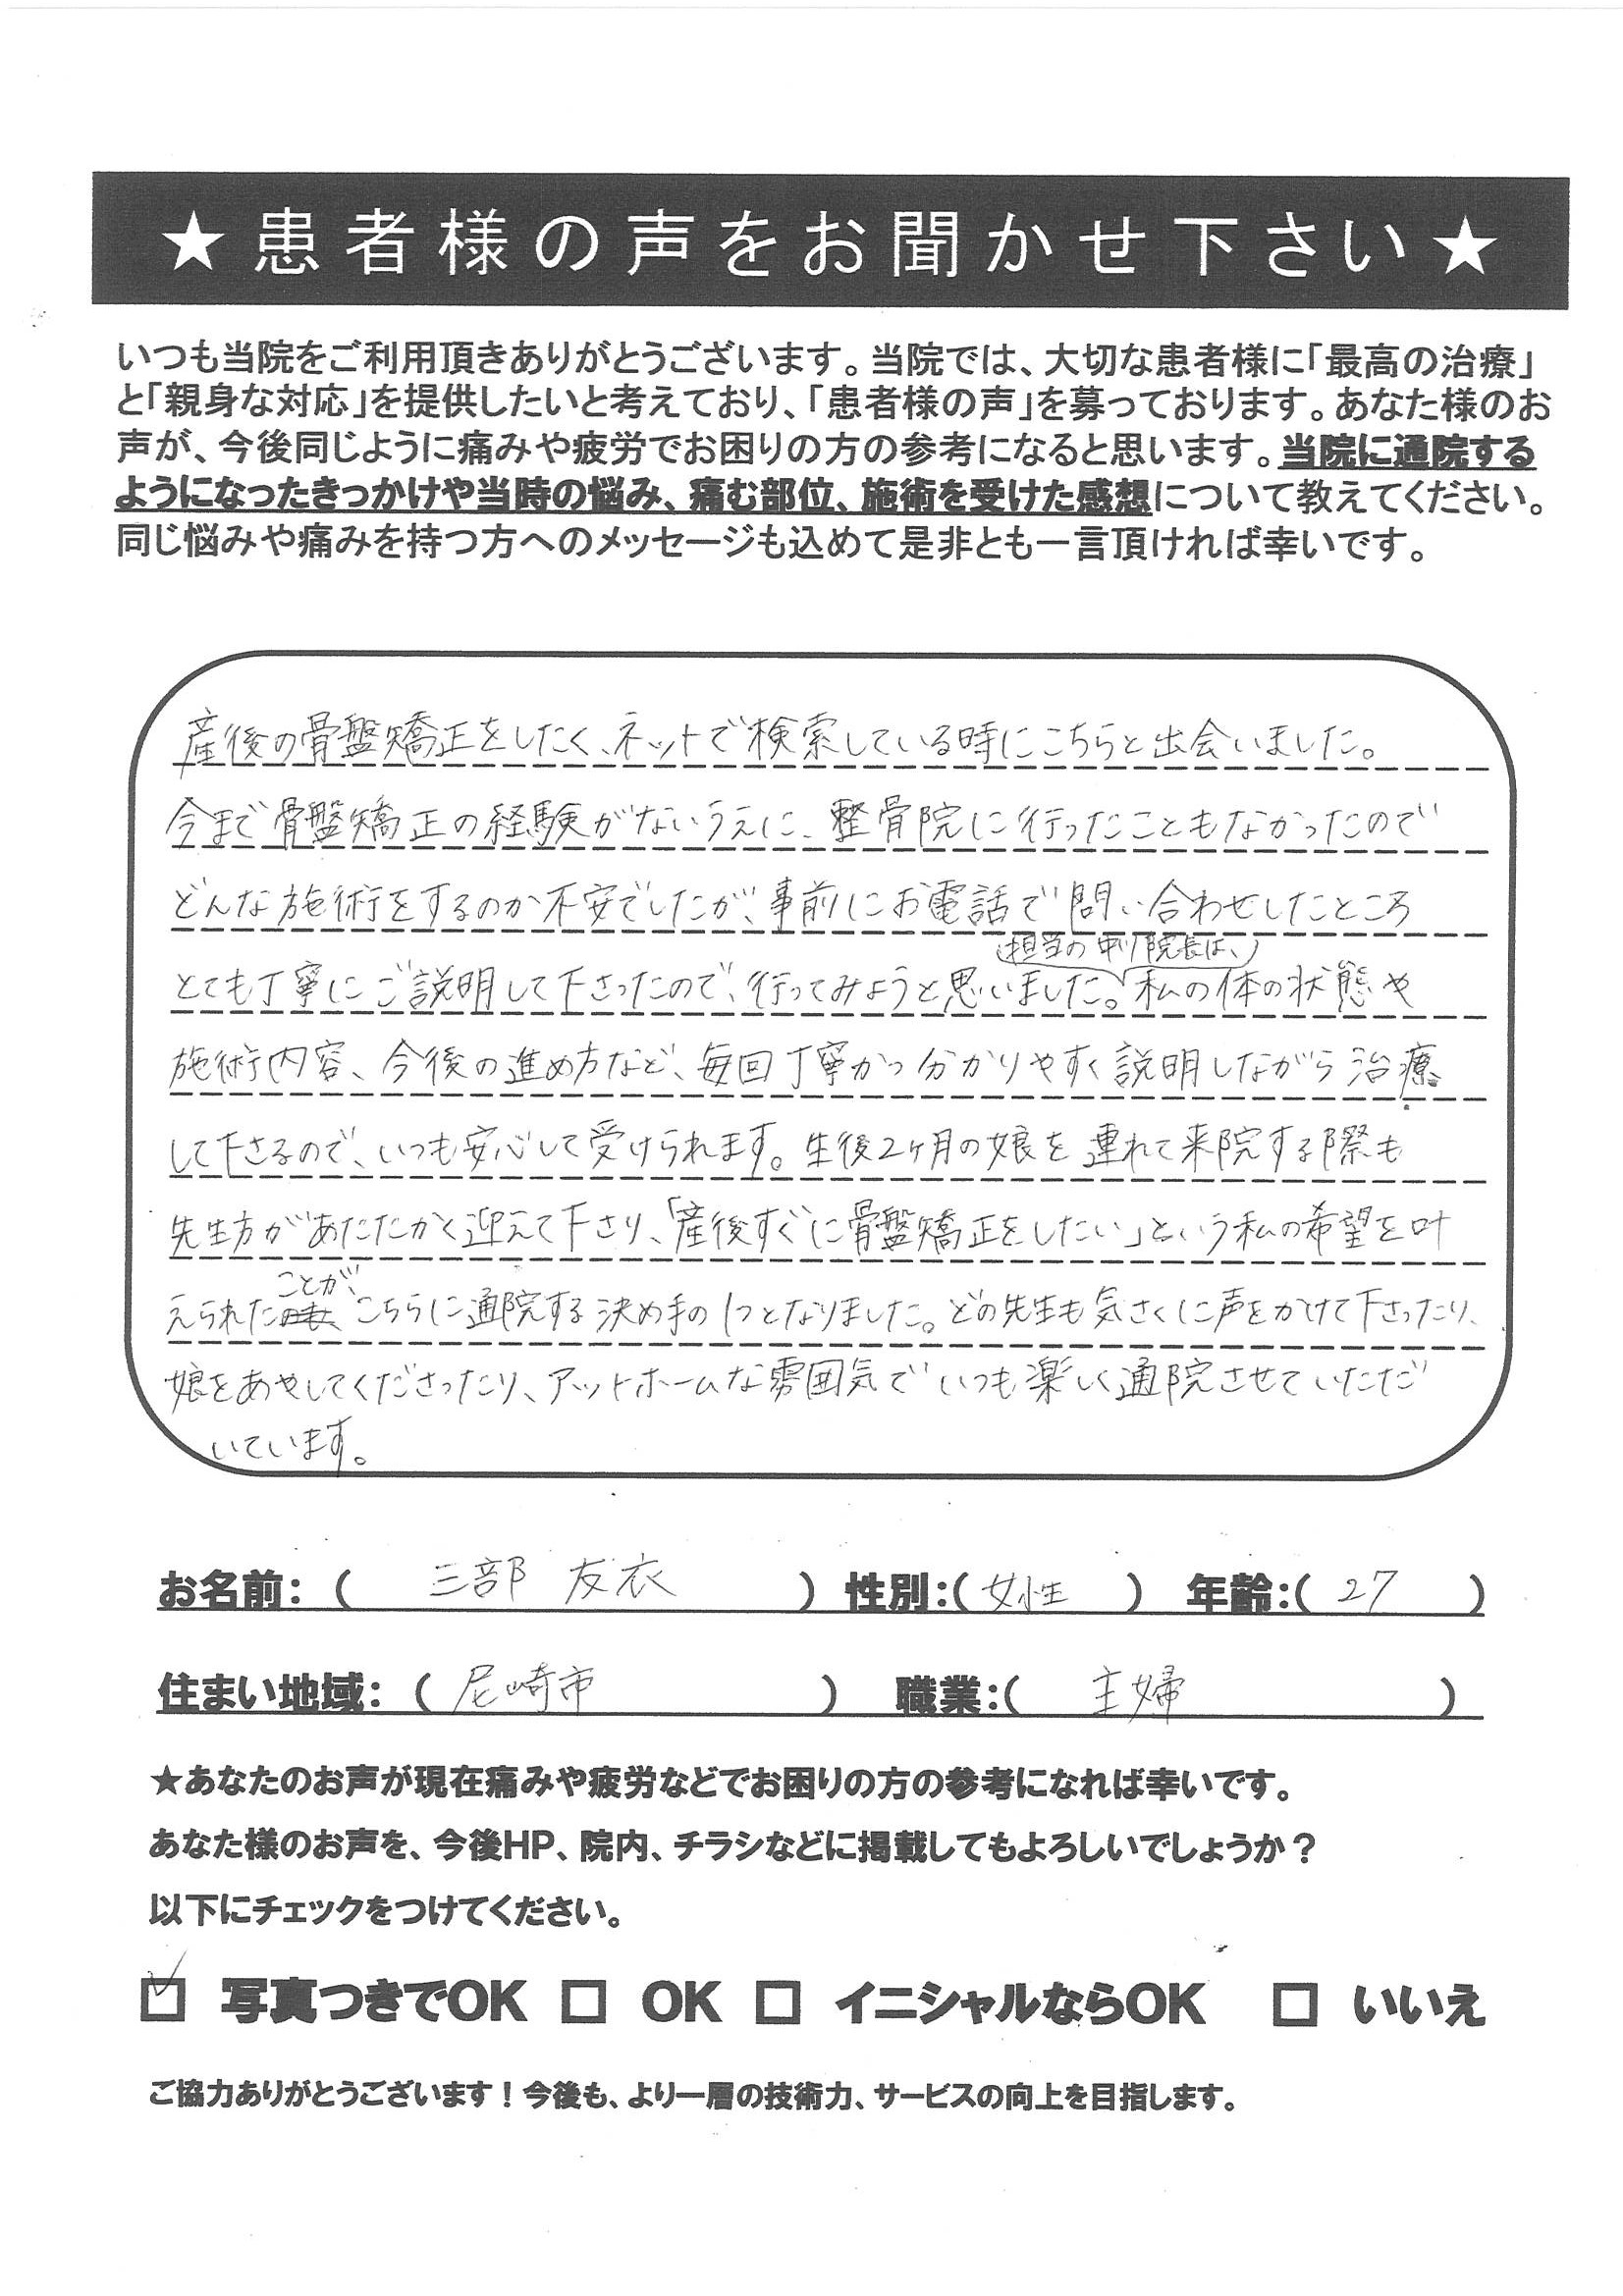 ★患者様の声をお聞かせ下さい★
いつも当院をご利用頂きありがとうございます。当院では、大切な患者様に「最高の治療」
と「親身な対応」を提供したいと考えており、「患者様の声」を募っております。あなた様のお
声が、今後同じように痛みや疲労でお困りの方の参考になると思います。当院に通院する
ようになったきっかけや当時の悩み、痛む部位、施術を受けた感想について教えてください。
同じ悩みや痛みを持つ方へのメッセージも込めて是非とも一言頂ければ幸いです。
産後の骨盤矯正をしたく、ネットで検索している時にこちらと出会いました。
今まで骨盤矯正の経験がないうえに、整骨院に行ったこともなかったので
どんな施術をするのか不安でしたが、事前にお電話で問い合わせしたところ
担当の中川院長は、
とても丁寧にご説明して下さったので、行ってみようと思いました。私の体の状態や
施術内容、今後の進め方など、毎回丁寧かつ分かりやすく説明しながら治療
して下さるので、いつも安心して受けられます。生後2ヶ月の娘を連れて来院する際も
先生方があたたかく迎えて下さり、「産後すぐに骨盤矯正をしたい」という私の希望を叶
ことが、
えられた こちらに通院する決め手の1つとなりました。どの先生も気さくに声をかけて下さったり、
娘をあやしてくださったり、アットホームな雰囲気でいつも楽しく通院させていただ
いています。
お名前：（ 三部 友衣 ） 性別：（ 女性 ） 年齢：（ 27 ）
住まい地域：（ 尼崎市 ） 職業：（ 主婦 ）
★あなたのお声が現在痛みや疲労などでお困りの方の参考になれば幸いです。
あなた様のお声を、今後HP、院内、チラシなどに掲載してもよろしいでしょうか？
以下にチェックをつけてください。
☑ 写真つきでOK □ OK □ イニシャルならOK □ いいえ
ご協力ありがとうございます！今後も、より一層の技術力、サービスの向上を目指します。